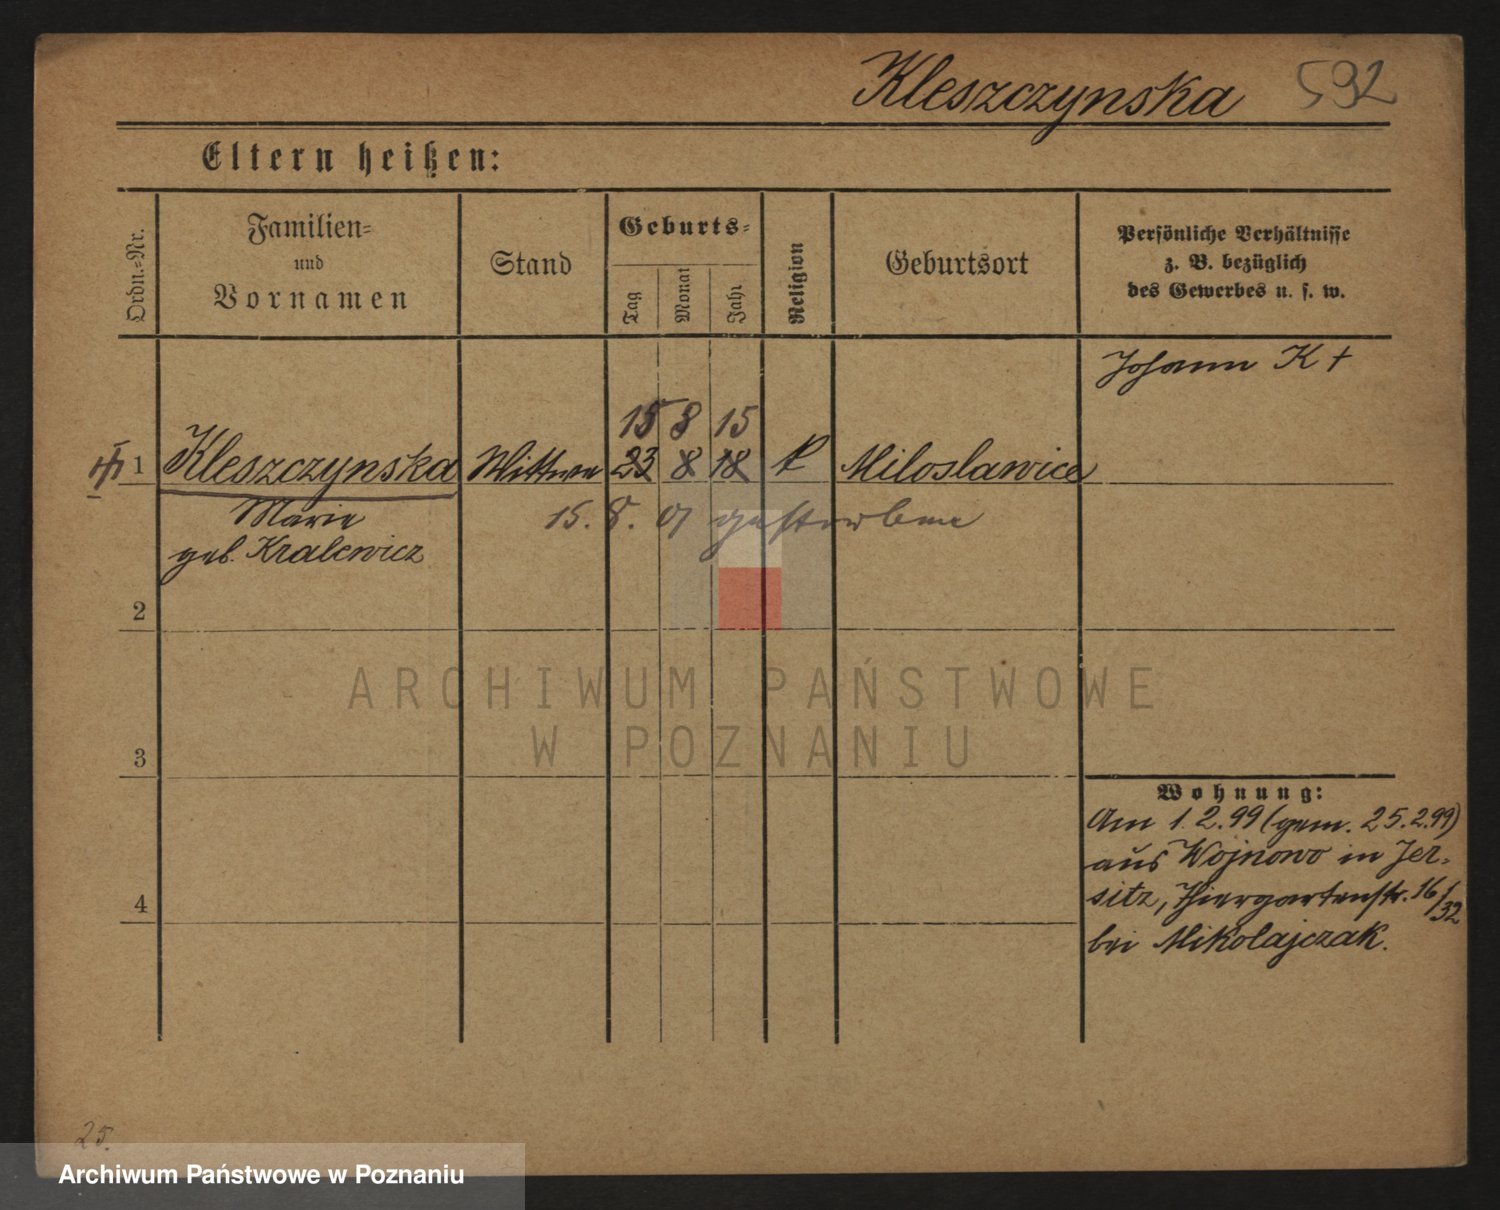 Kleszczynska 592
Eltern heißen:
Ordn.-Nr.
Familien-
und
Vornamen
Stand
Geburts-
Tag
Monat
Jahr
Religion
Geburtsort
Persönliche Verhältnisse
z. B. bezüglich
des Gewerbes u. s. w.
Johann K †
15 8 15
1 Kleszczynska Wittwe 23 8 18 k Miloslawice
Marie
geb. Kralewicz
15. 8. 01 gestorben
2
ARCHIWUM PAŃSTWOWE
W POZNANIU
3
Wohnung:
Am 1. 2. 99 (gem. 25.2.99)
aus Wojnowo in Jer-
sitz, Thiergartenstr. 16/32
bei Mikolajczak.
4
25.
Archiwum Państwowe w Poznaniu